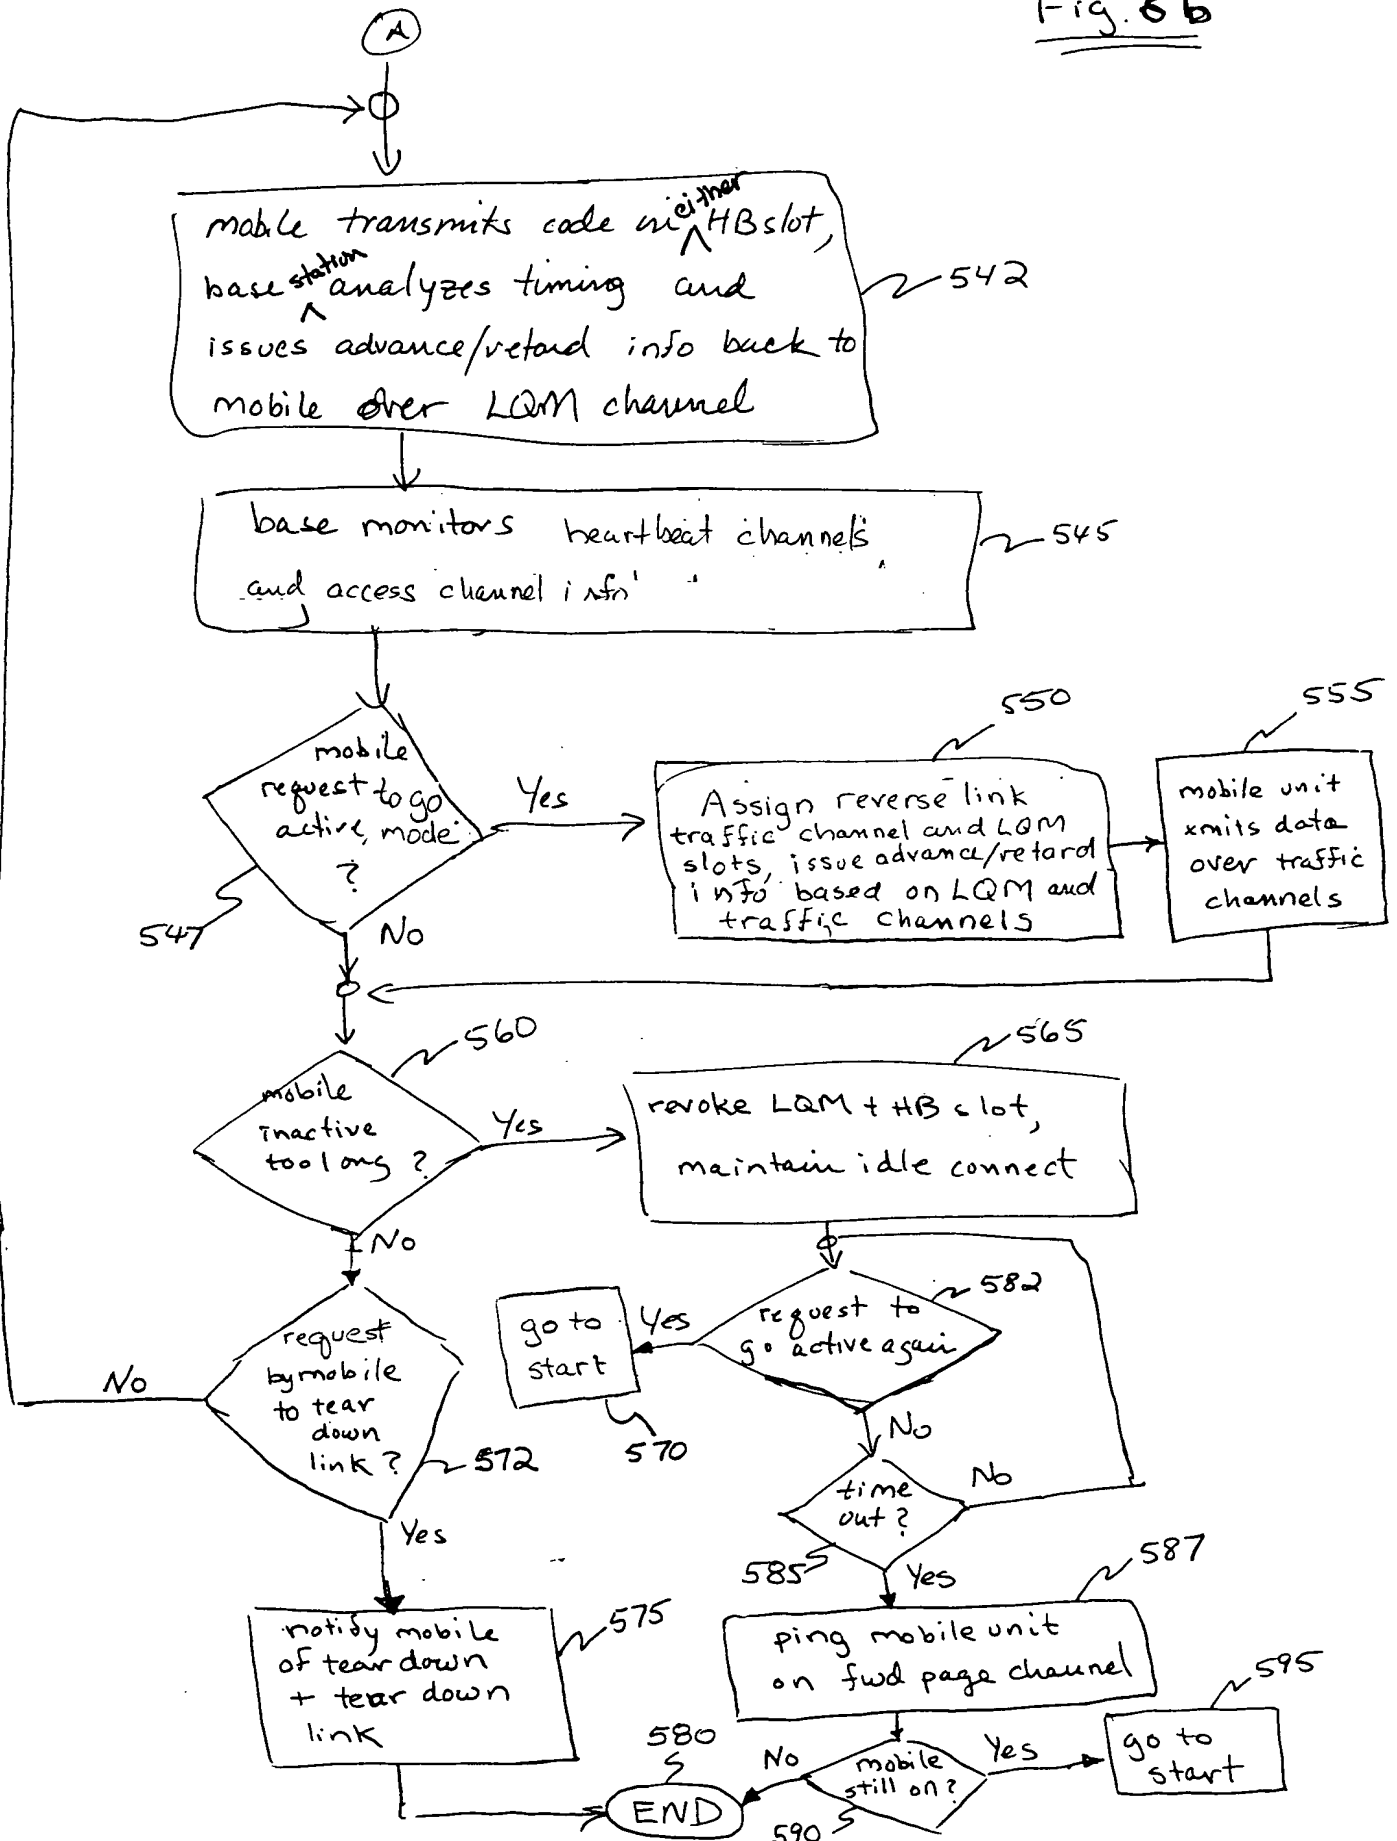 Fig. 6b
A
mobile transmits code in either HB slot,
base station analyzes timing and
issues advance/retard info back to
mobile over LQM channel
542
base monitors heartbeat channels
and access channel info
545
mobile
request to go
active, mode
?
547
Yes
No
550
Assign reverse link
traffic channel and LQM
slots, issue advance/retard
info based on LQM and
traffic channels
555
mobile unit
xmits data
over traffic
channels
560
mobile
inactive
too long ?
Yes
No
565
revoke LQM + HB slot,
maintain idle connect
582
request to
go active again
Yes
go to
start
570
No
time
out?
No
585
Yes
request
by mobile
to tear
down
link ?
572
No
Yes
587
ping mobile unit
on fwd page channel
notify mobile
of tear down
+ tear down
link
575
595
go to
start
mobile
still on?
Yes
No
590
580
END